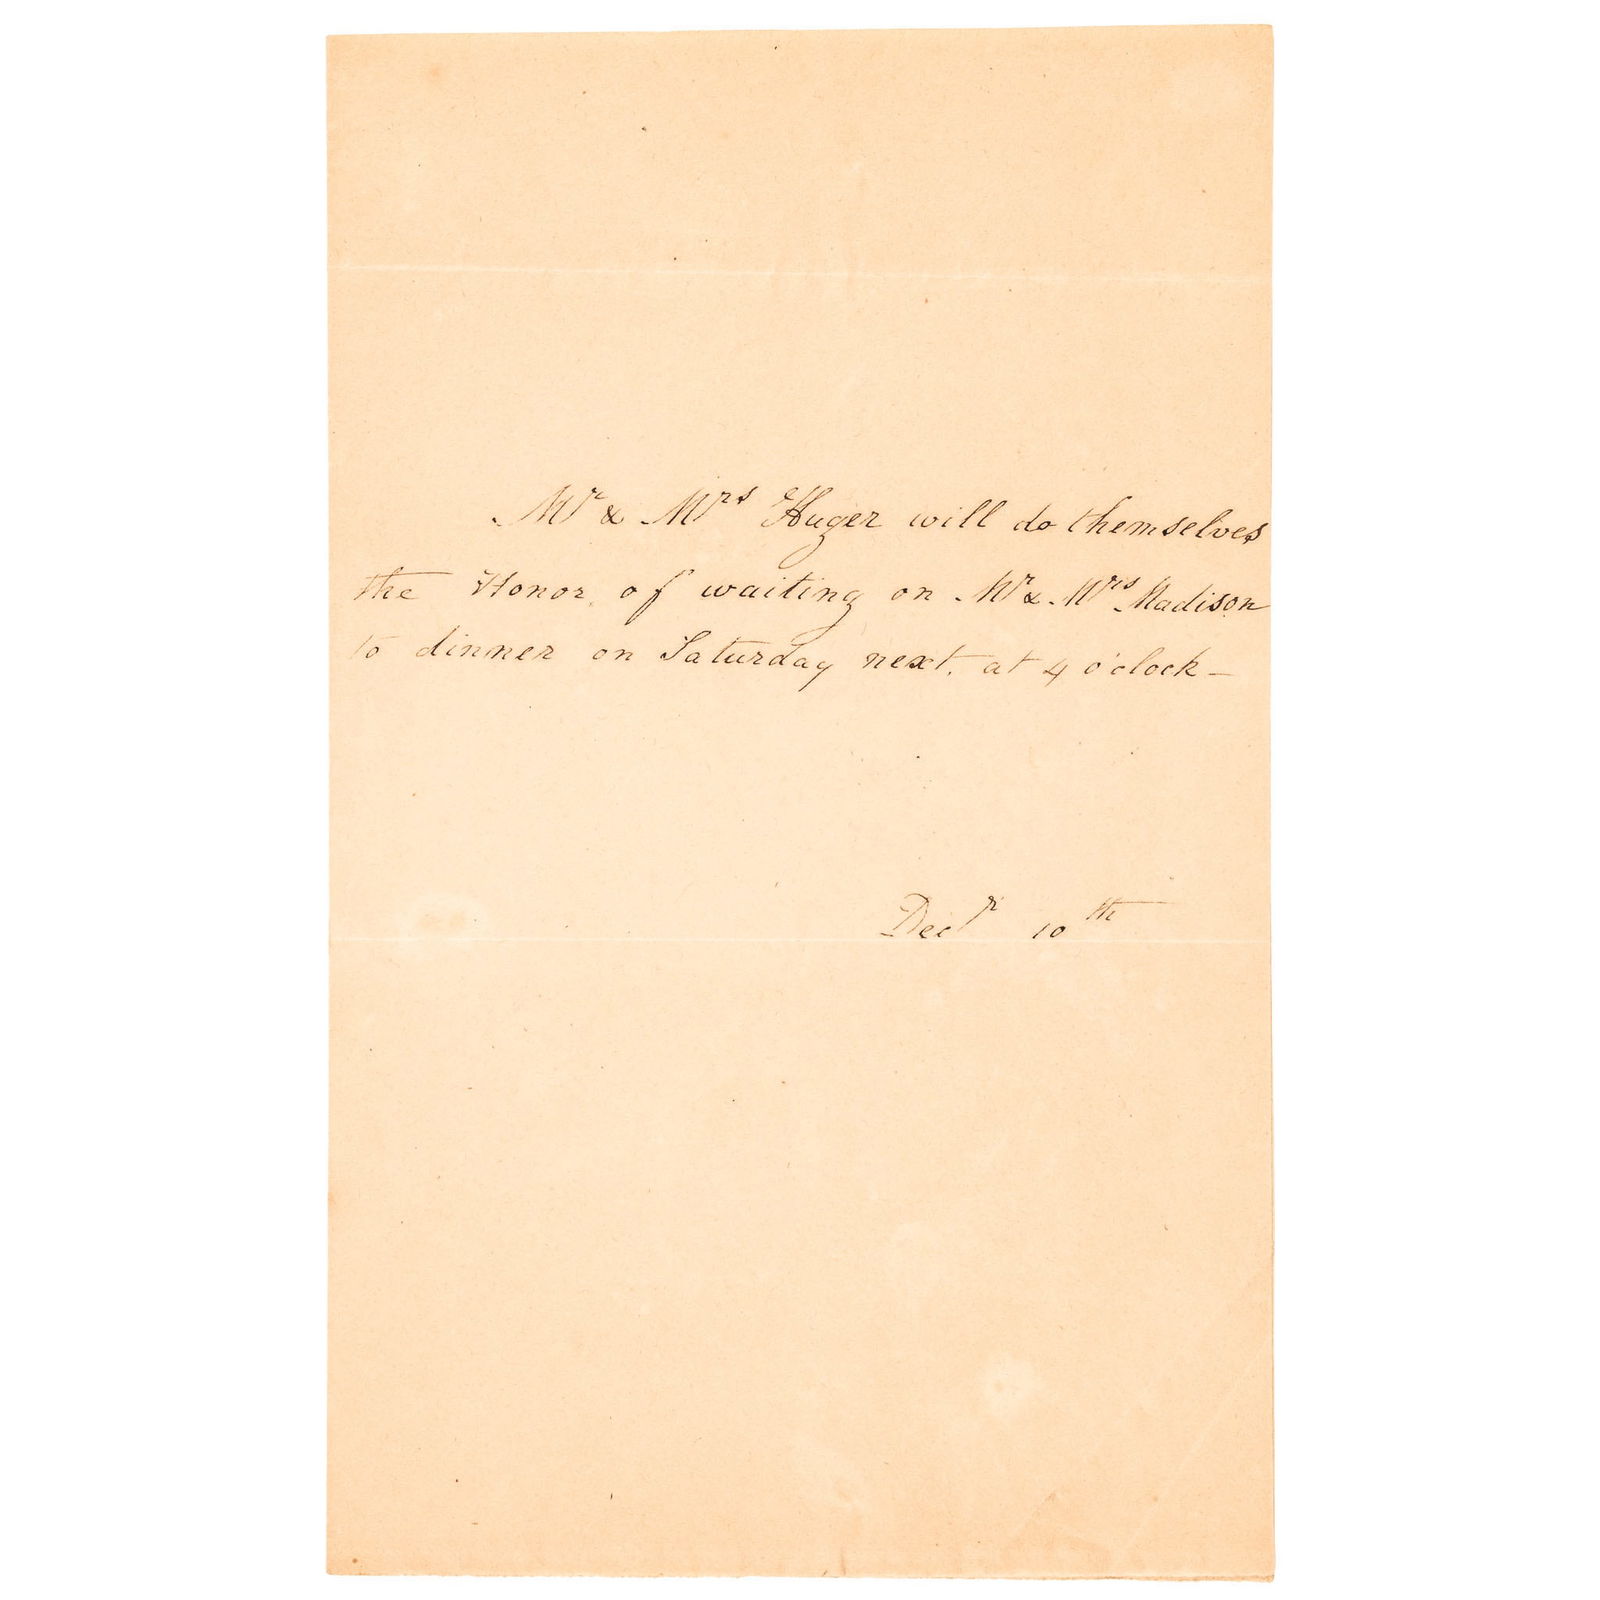 Mr & Mrs Huger will do themselves
the Honor of waiting on Mr & Mrs Madison
to dinner on Saturday next. at 4 o'clock –
Decr 10th